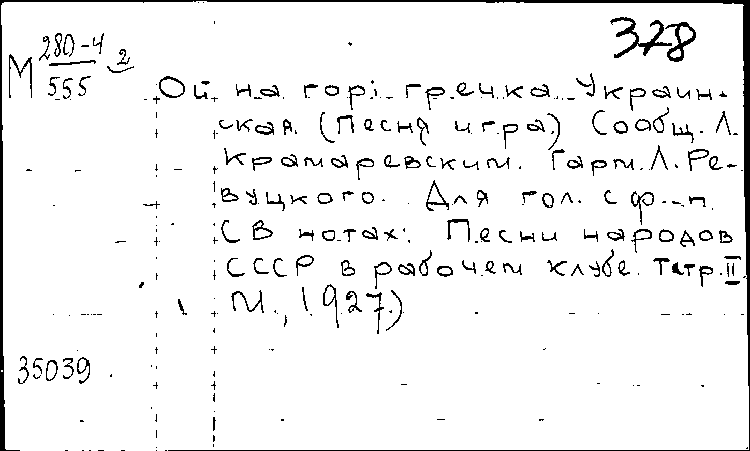 378
М 280-4/555 2
Ой на горі гречка Украин-
ская (Песня игра) Сообщ. Л.
Крамаревским. Гарм. Л. Ре-
вуцкого. Для гол. с ф.-п.
(В нотах: Песни народов
СССР в рабочем клубе. Тетр. II
М., 1927.)
35039